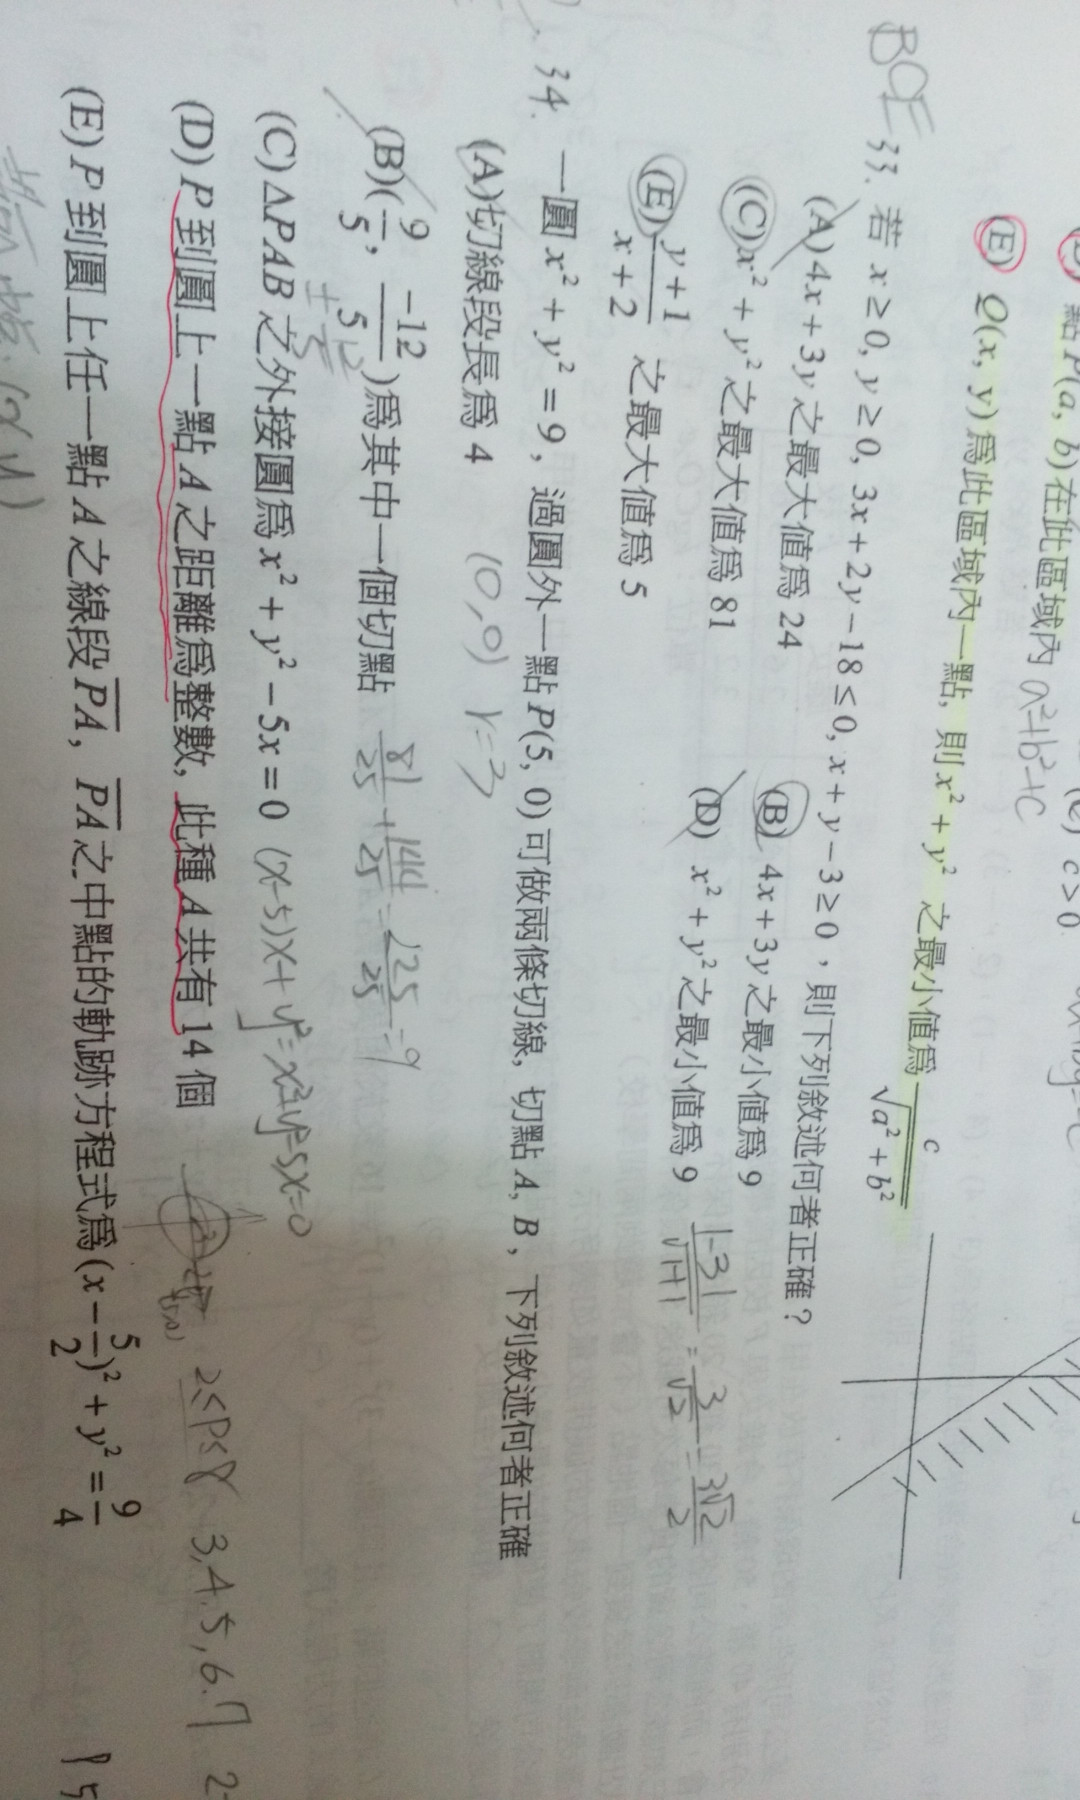 點P(a, b)在此區域內 a²+b²+c
(c) c>0
(E) Q(x, y)為此區域內一點, 則 x² + y² 之最小值為 c/√(a² + b²)
BCE 33. 若 x ≥ 0, y ≥ 0, 3x + 2y − 18 ≤ 0, x + y − 3 ≥ 0，則下列敘述何者正確？
(A) 4x + 3y 之最大值為 24 (B) 4x + 3y 之最小值為 9
(C) x² + y² 之最大值為 81 (D) x² + y² 之最小值為 9 |-3|/√1+1 = 3/√2 = 3√2/2
(E) (y + 1)/(x + 2) 之最大值為 5
34. 一圓 x² + y² = 9，過圓外一點 P(5, 0) 可做兩條切線, 切點 A, B，下列敘述何者正確
(A)切線段長為 4 (0,0) r=3
(B)(9/5, −12/5)為其中一個切點 81/25 + 144/25 = 225/25 = 9
(C) ΔPAB 之外接圓為 x² + y² − 5x = 0 (x-5)x+y²=x²+y²-5x=0
(D) P 到圓上一點 A 之距離為整數, 此種 A 共有 14 個 2≤P≤8 3,4,5,6,7
(E) P 到圓上任一點 A 之線段 PA, PA 之中點的軌跡方程式為 (x − 5/2)² + y² = 9/4